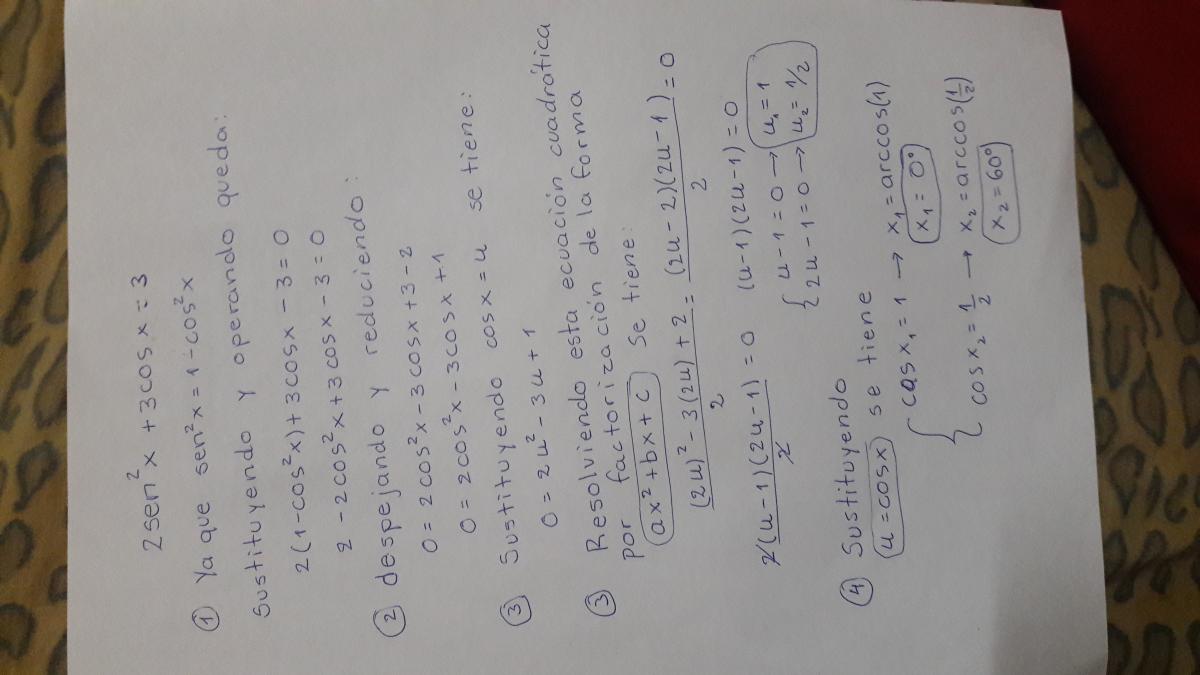 2sen²x + 3cosx = 3
① Ya que sen²x = 1 - cos²x
sustituyendo y operando queda:
2(1-cos²x)+3cosx - 3 = 0
2 - 2cos²x+3cosx - 3 = 0
② despejando y reduciendo:
0 = 2cos²x - 3cosx + 3 - 2
0 = 2cos²x - 3cosx + 1
③ Sustituyendo cosx = u se tiene:
0 = 2u² - 3u + 1
③ Resolviendo esta ecuación cuadrática
por factorización de la forma
ax² + bx + c se tiene:
(2u)² - 3(2u) + 2 / 2 = (2u - 2)(2u - 1) / 2 = 0
2(u - 1)(2u - 1) / 2 = 0 (u - 1)(2u - 1) = 0
{ u - 1 = 0 → u₁ = 1
2u - 1 = 0 → u₂ = 1/2
④ Sustituyendo
u = cosx se tiene
{ cosx₁ = 1 → x₁ = arccos(1)
x₁ = 0°
cosx₂ = 1/2 → x₂ = arccos(1/2)
x₂ = 60°